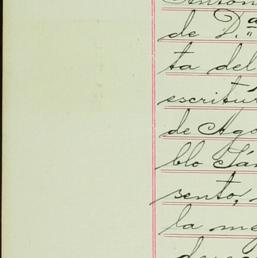 Anton
de D.ª
ta del
escritur
de Ago
blo Sán
sento,
la me